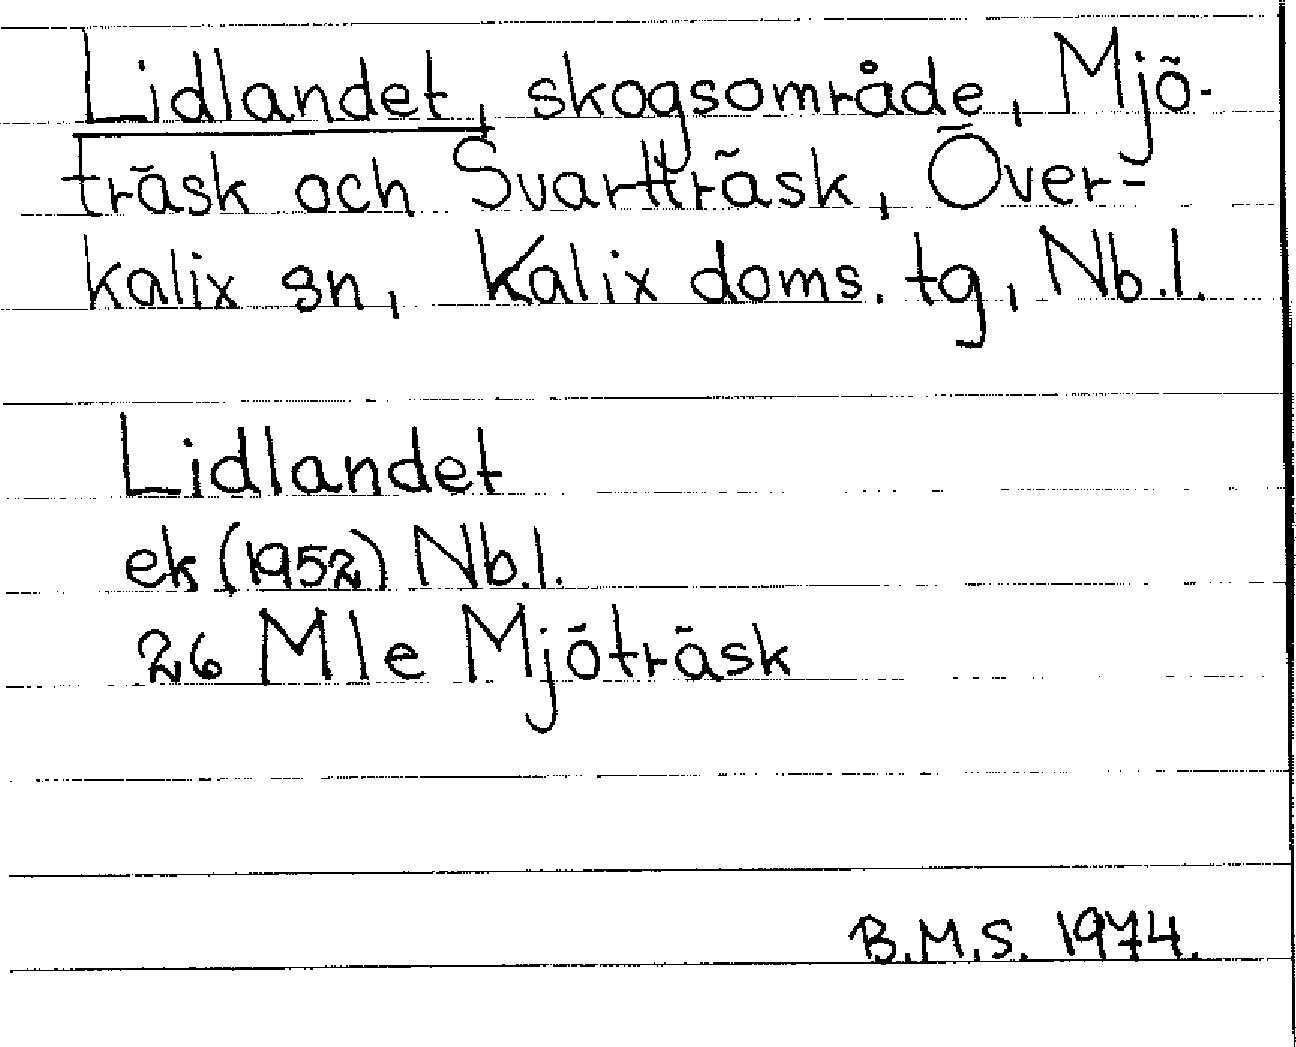 Lidlandet, skogsområde, Mjö-
träsk och Svartträsk, Över-
kalix sn, Kalix doms. tg, Nb.l.
Lidlandet
ek (1952) Nb.l.
26 Mle Mjöträsk
B.M.S. 1974.